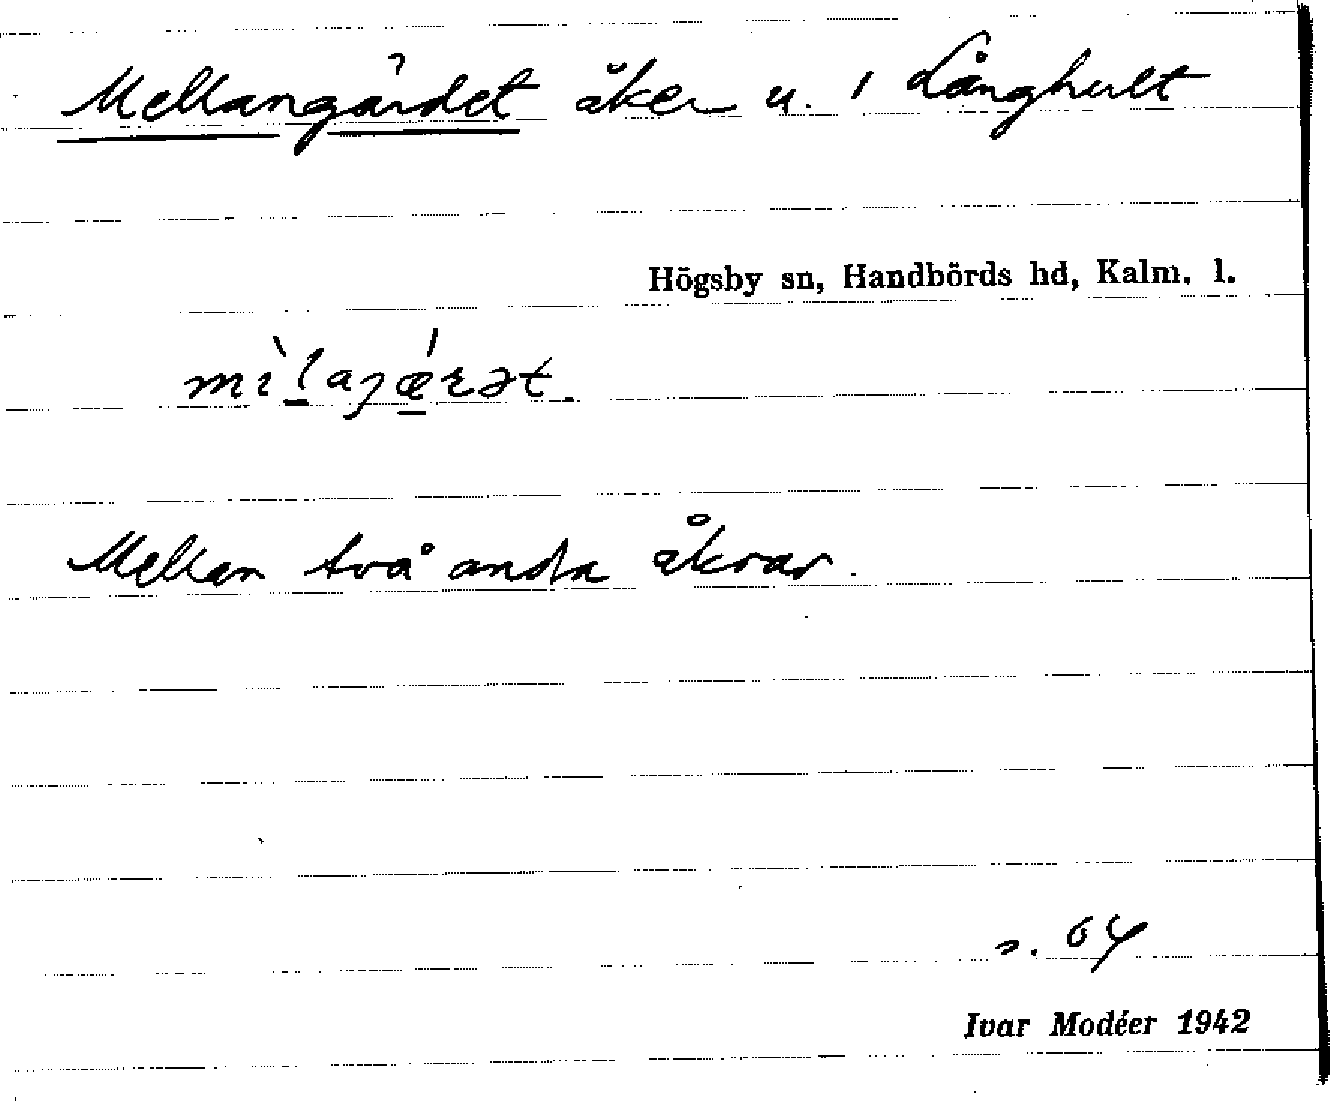 Mellangärdet åker u. 1 Långhult
Högsby sn, Handbörds hd, Kalm. l.
mìlaȷǽrət.
Mellan två andra åkrar.
s. 64
Ivar Modéer 1942